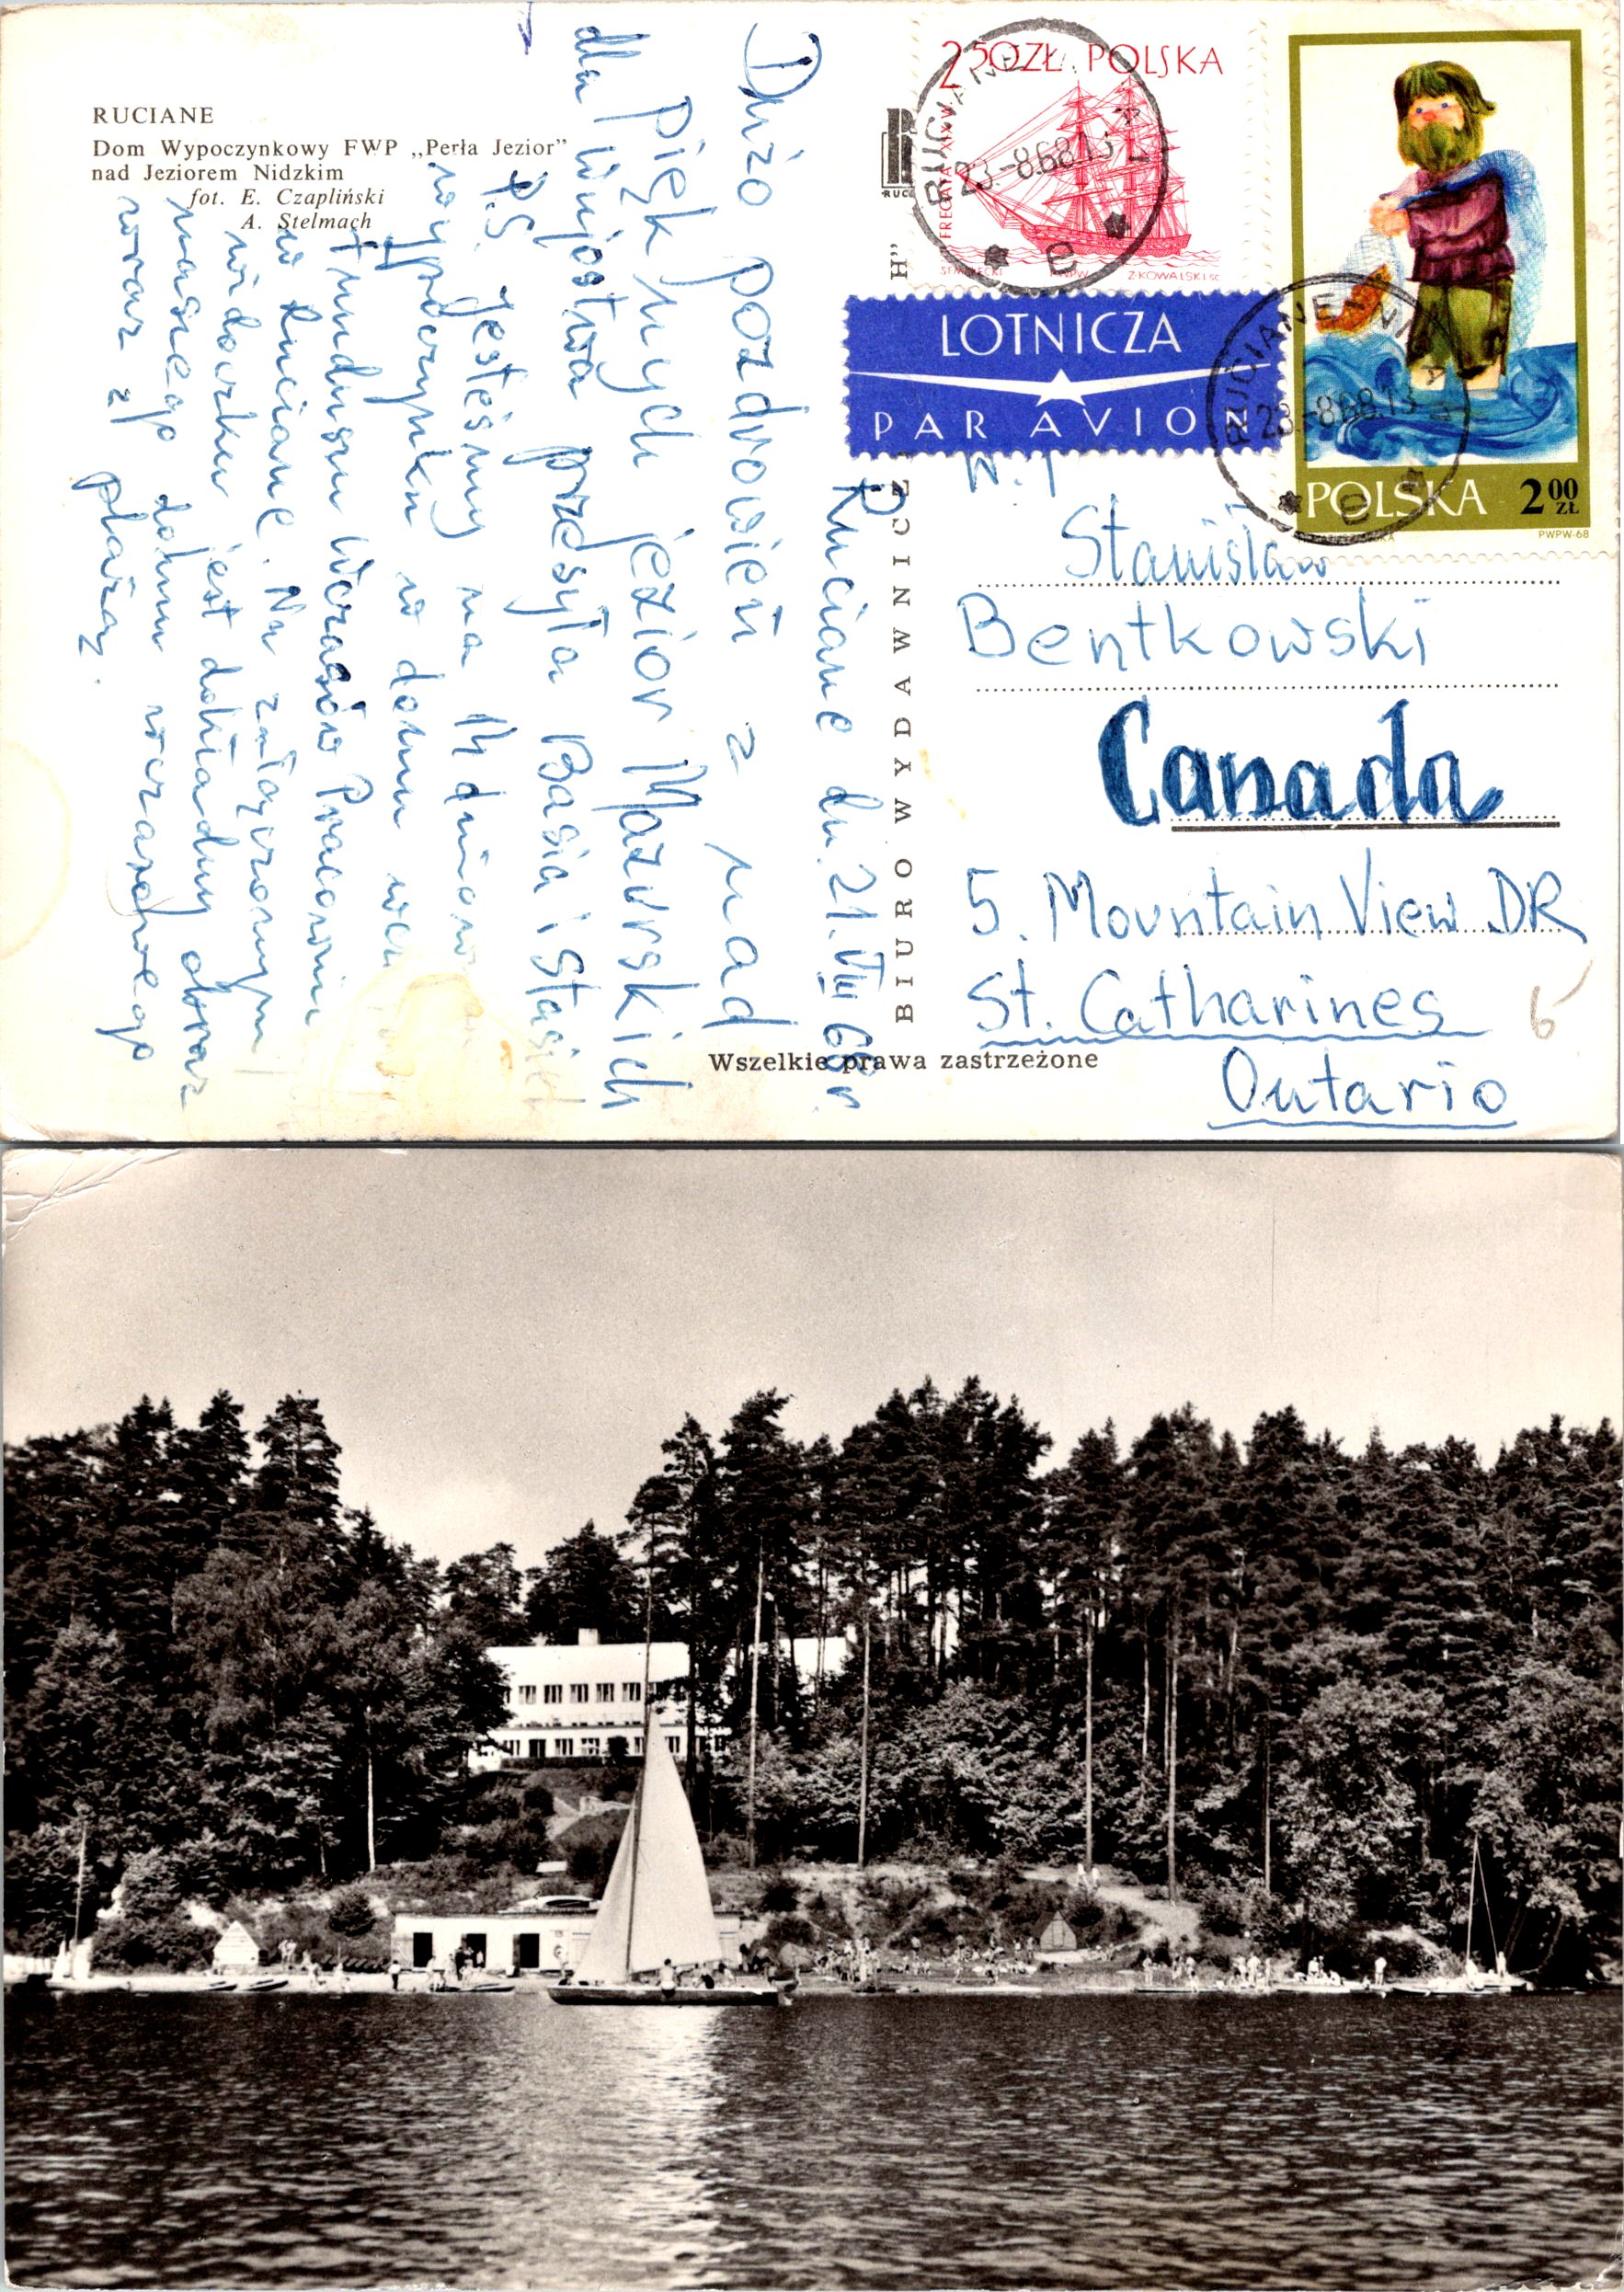 RUCIANE
Dom Wypoczynkowy FWP „Perła Jezior”
nad Jeziorem Nidzkim
fot. E. Czapliński
A. Stelmach
Ruciane dn. 21.VIII 68 r.
Dużo pozdrowień z nad
Pięknych jezior Mazurskich
dla Wujostwa przesyła Basia i Stasiek
P.S. Jesteśmy na 14 dniowym
wypoczynku w domu
Funduszu Wczasów Pracowni
w Ruciane. Na załączonym
widoczku jest dokładny obraz
naszego domu wczasowego
wraz z plażą.
BIURO WYDAWNICZ H”
RUC
Wszelkie prawa zastrzeżone
2,50ZŁ POLSKA
FREGATA XIX W.
Z.KOWALSKI SC.
PWPW
RUCIANE-NIDA
23.-8.68.13
e
LOTNICZA
PAR AVION
POLSKA 2 00 ZŁ
PWPW-68
RUCIANE-NIDA
23.-8.68.13
e
Stanisław
Bentkowski
Canada
5. Mountain View DR
St. Catharines
Ontario